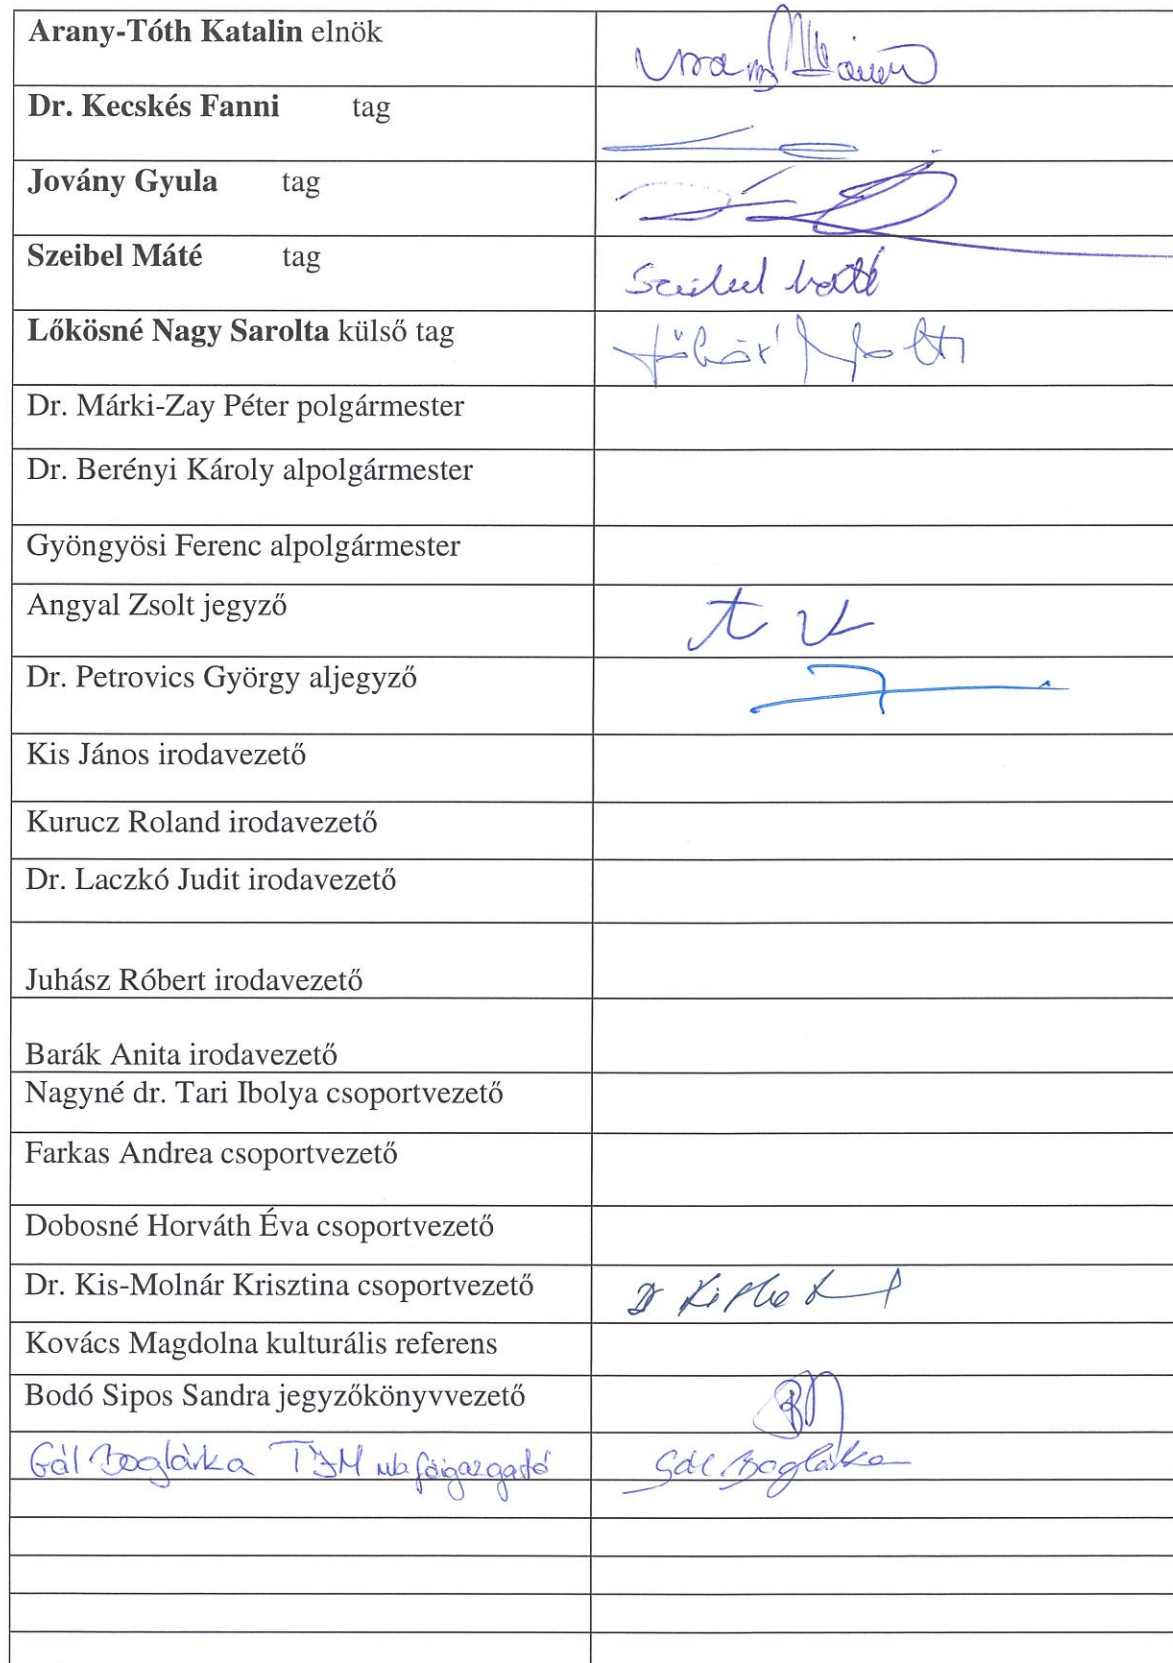 Arany-Tóth Katalin elnök
Dr. Kecskés Fanni tag
Jovány Gyula tag
Szeibel Máté tag
Szeibel Máté
Lőkösné Nagy Sarolta külső tag
Dr. Márki-Zay Péter polgármester
Dr. Berényi Károly alpolgármester
Gyöngyösi Ferenc alpolgármester
Angyal Zsolt jegyző
Dr. Petrovics György aljegyző
Kis János irodavezető
Kurucz Roland irodavezető
Dr. Laczkó Judit irodavezető
Juhász Róbert irodavezető
Barák Anita irodavezető
Nagyné dr. Tari Ibolya csoportvezető
Farkas Andrea csoportvezető
Dobosné Horváth Éva csoportvezető
Dr. Kis-Molnár Krisztina csoportvezető
Kovács Magdolna kulturális referens
Bodó Sipos Sandra jegyzőkönyvvezető
Gál Boglárka TJM mb főigazgató Gál Boglárka